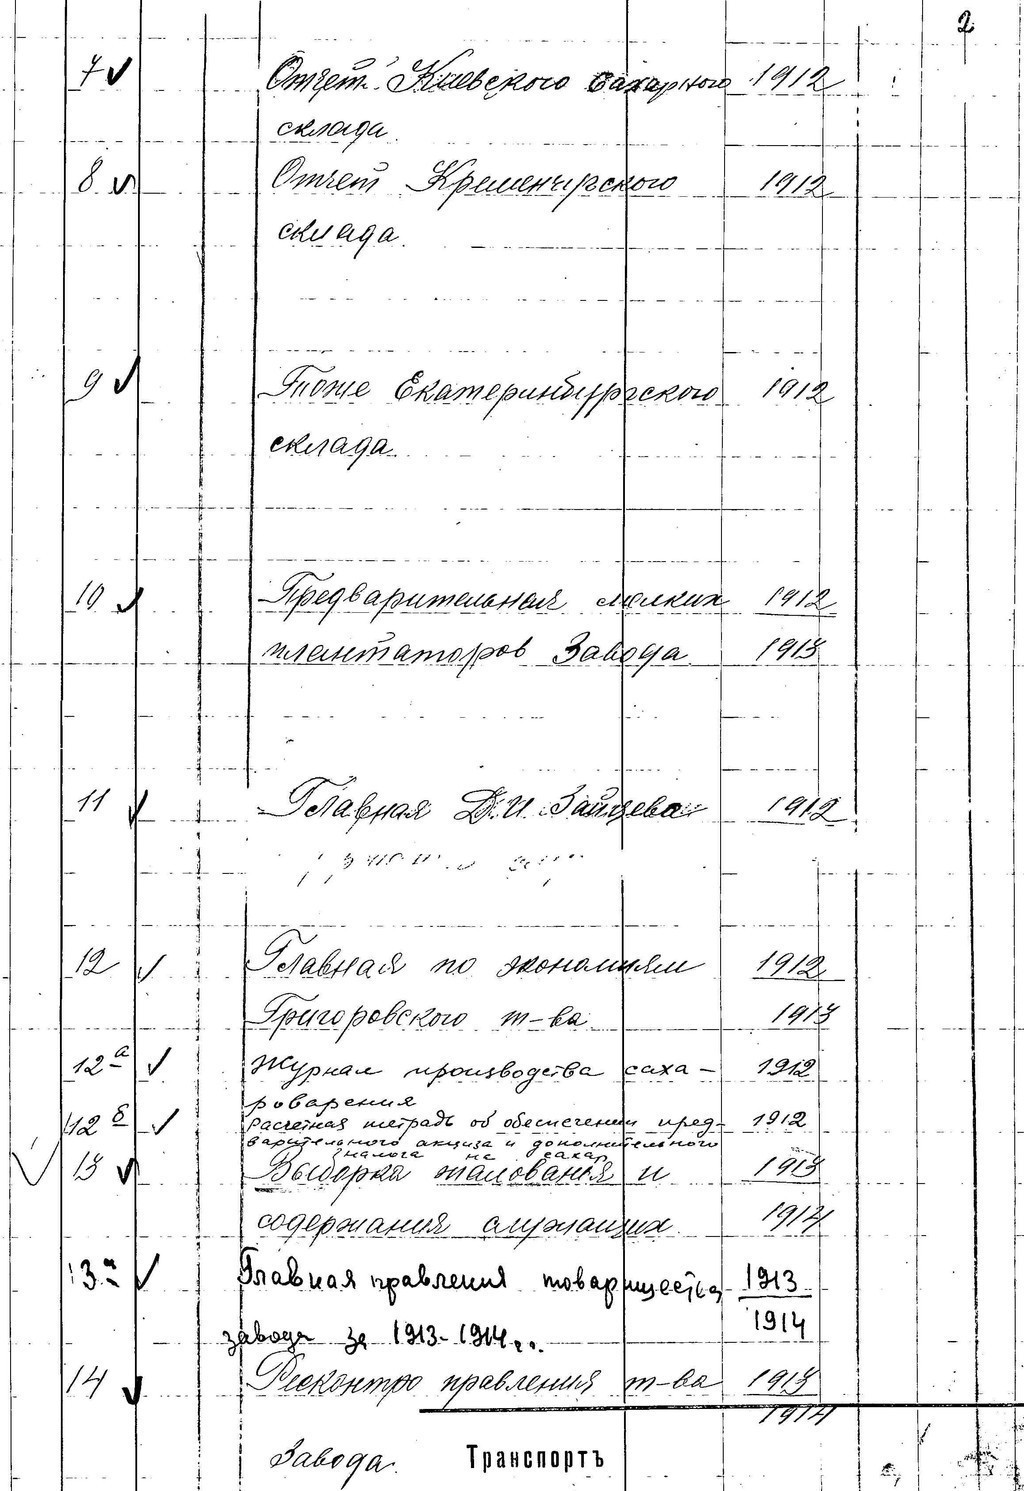 2
7 Отчет Киевского сахарного 1912
склада
8 Отчет Кременчугского 1912
склада
9 Тоже Екатеринбургского 1912
склада
10 Предварительная мелких 1912
плантаторов Завода 1913
11 Главная Д.И. Зайцева 1912
12 Главная по экономиям 1912
Григоровского т-ва 1913
12а Журнал производства саха- 1912
роварения
12б Расчетная тетрадь об обеспечении пред- 1912
варительного акциза и дополнительного
налога на сахар
13 Выборка жалованья и 1913
содержания служащих 1914
13а Главная правления товарищества 1913
завода за 1913-1914 г. 1914
14 Ресконтро правления т-ва 1913
1914
Завода. Транспортъ